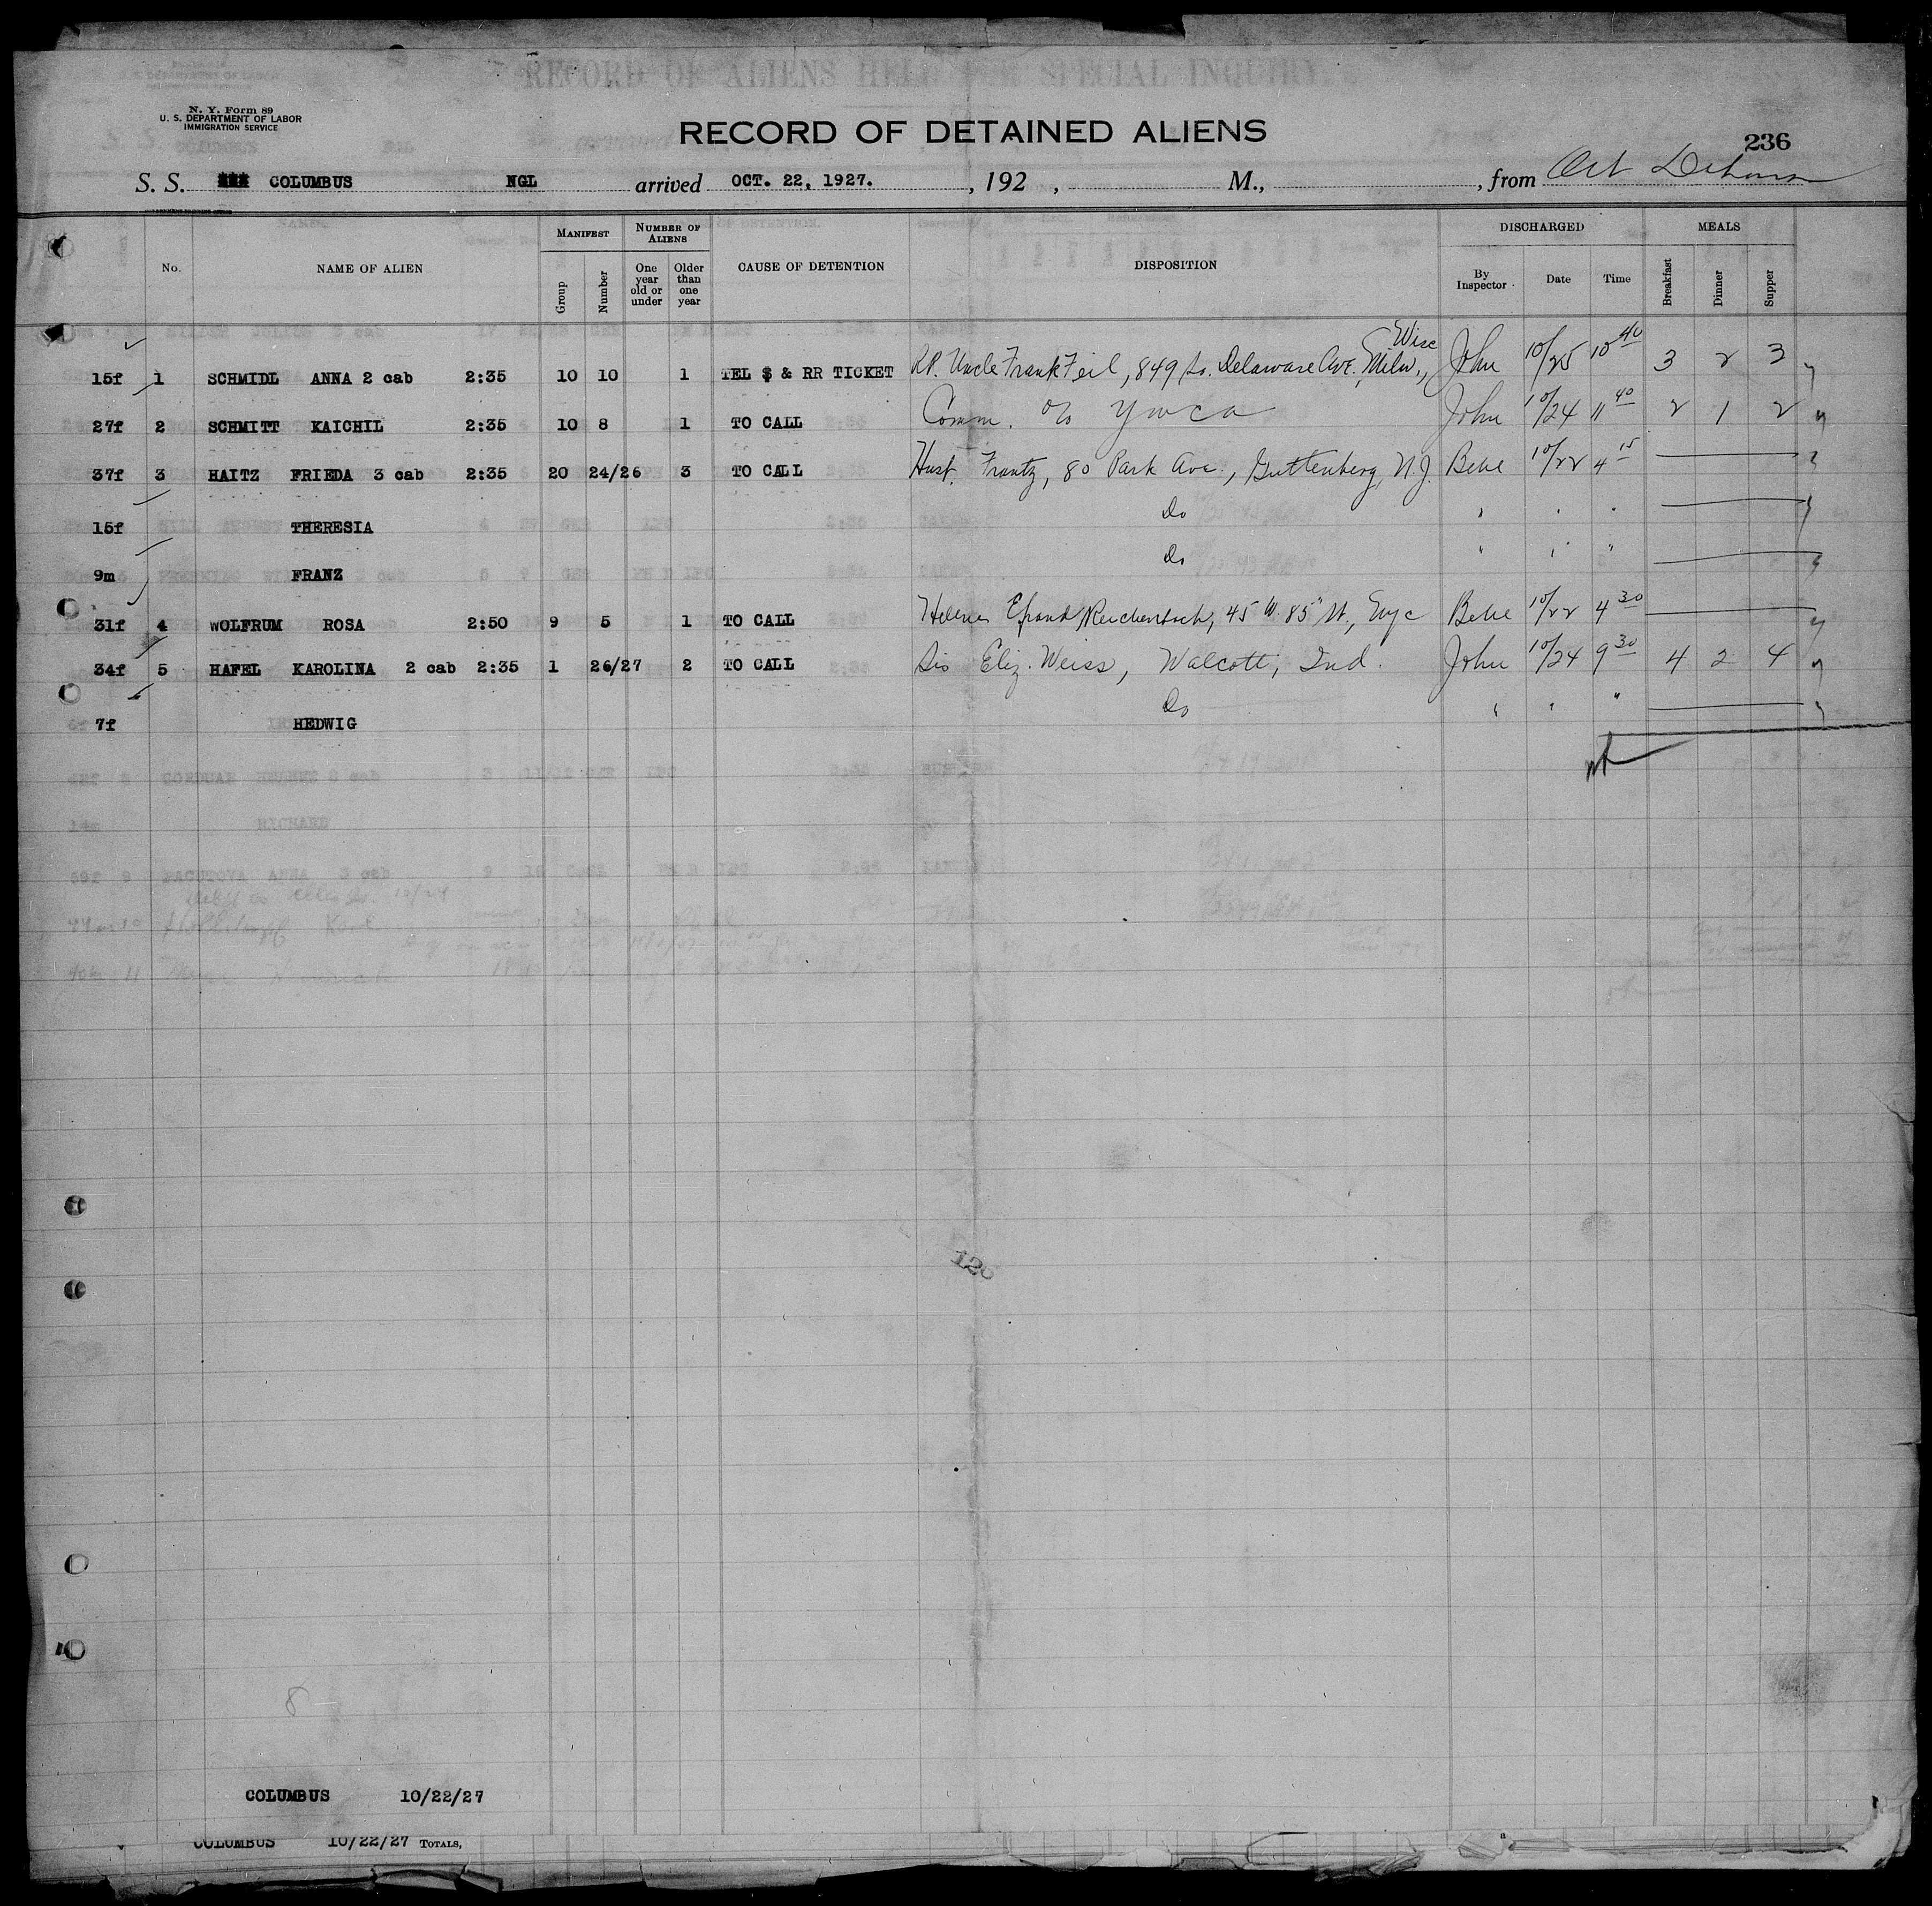 RECORD OF ALIENS HELD FOR SPECIAL INQUIRY
N. Y. Form 89
U. S. DEPARTMENT OF LABOR
IMMIGRATION SERVICE
RECORD OF DETAINED ALIENS
236
S. S. COLUMBUS NGL arrived OCT. 22, 1927. , 192 , M., , from
No. NAME OF ALIEN MANIFEST Group Number NUMBER OF ALIENS One year old or under Older than one year CAUSE OF DETENTION DISPOSITION DISCHARGED By Inspector Date Time MEALS Breakfast Dinner Supper
15f 1 SCHMIDL ANNA 2 cab 2:35 10 10 1 TEL $ & RR TICKET Uncle Frank Feil, 849 So. Delaware Ave., Milw., Wisc John 10/25 10 40 3 2 3
27f 2 SCHMITT KAICHIL 2:35 10 8 1 TO CALL Comm. c/o YWCA John 10/24 11 40 2 1 2
37f 3 HAITZ FRIEDA 3 cab 2:35 20 24/26 3 TO CALL Husb. Frantz, 80 Park Ave., Guttenberg, N.J. Bebe 10/22 4 15
15f THERESIA Do " " "
9m FRANZ Do " " "
31f 4 WOLFRUM ROSA 2:50 9 5 1 TO CALL 45 W. 85" St., NYC Bebe 10/22 4 30
34f 5 HAFEL KAROLINA 2 cab 2:35 1 26/27 2 TO CALL Sis Eliz. Weiss, Walcott, Ind. John 10/24 9 30 4 2 4
7f HEDWIG Do " " "
8
COLUMBUS 10/22/27
COLUMBUS 10/22/27 TOTALS,